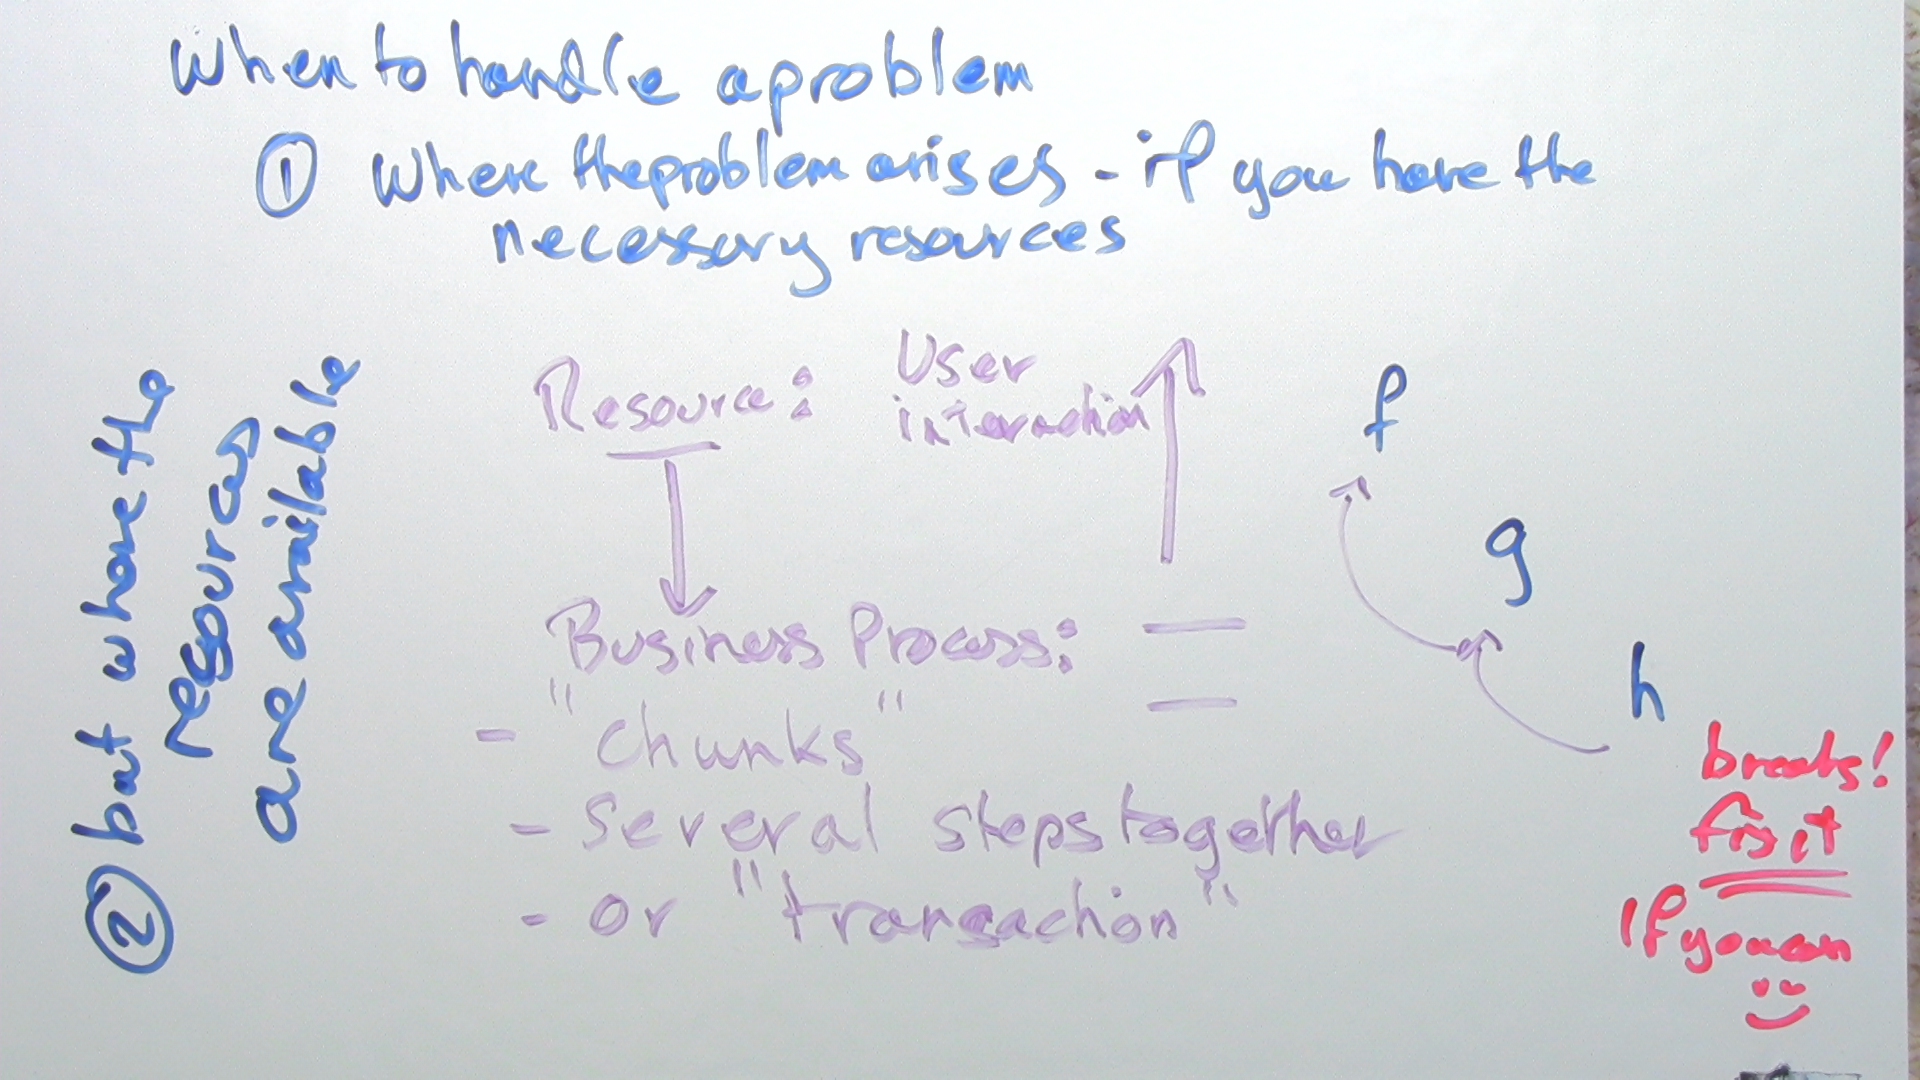 When to handle a problem
① Where the problem arises - if you have the
necessary resources
② but where the
resources
are available
Resource: User
interaction
Business Process:
- "chunks"
- Several steps together
- or "transaction"
f
g
h
breaks!
fix it
If you can